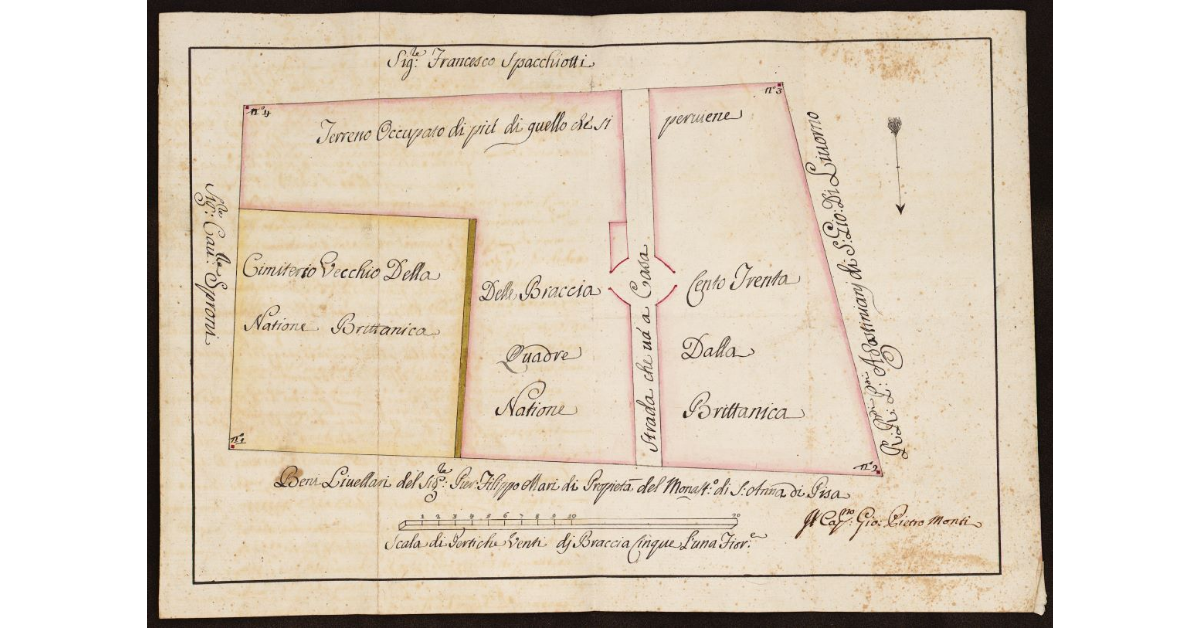 Sig.le Francesco Spacchiotti
n.o 4
n.o 3
Terreno Occupato di più di quello che si perviene
Sig.le Cau.lle Sproni
Cimiterio Vecchio Della
Natione Brittanica
Delle Braccia Cento Trenta
Quadre Dalla
Natione Brittanica
Strada che uà a Casa
R.R.di P.pri Agostiniani di S: Gio: Di Liuorno
n.o 1
n.o 2
Beni Liuellari del Sig.le Pier: Filippo Mari di Propietà del Monast.o di S: Anna di Pisa
1 2 3 4 5 6 7 8 9 10 20
Scala di Pertiche Venti di Braccia Cinque L'una Fior.e
Cap.no Gio: Pietro Monti